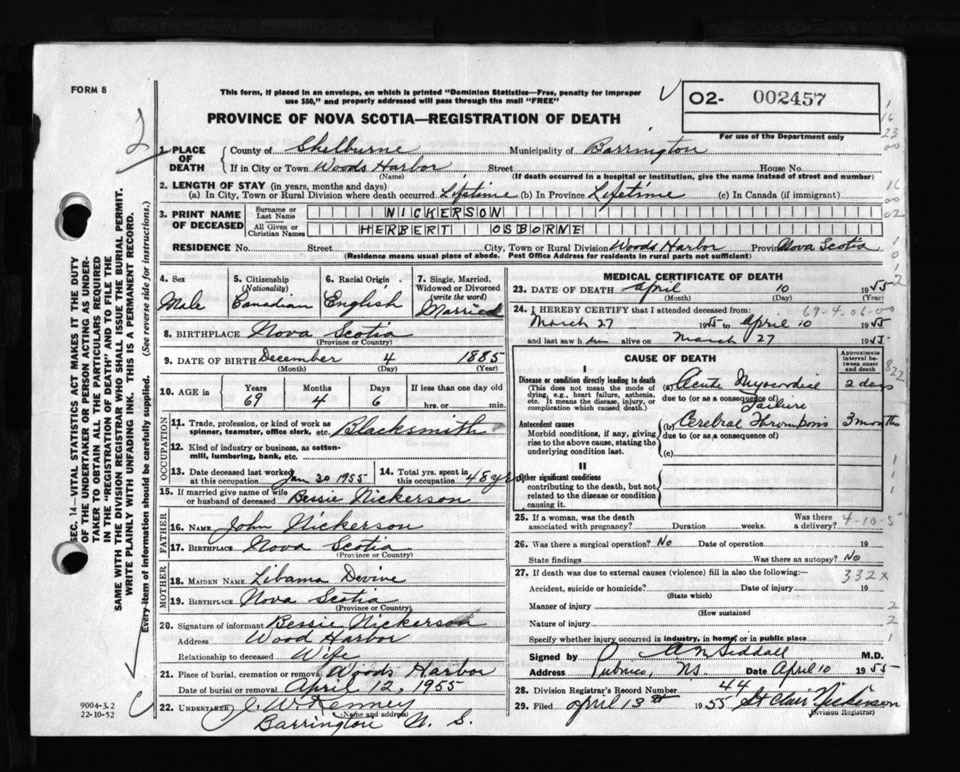 FORM 8
This form, if placed in an envelope, on which is printed "Dominion Statistics—Free, penalty for improper
use $50," and properly addressed will pass through the mail "FREE"
02- 002457
For use of the Department only
PROVINCE OF NOVA SCOTIA—REGISTRATION OF DEATH
1. PLACE OF DEATH { County of Shelburne Municipality of Barrington
If in City or Town Woods Harbor Street House No.
(Name) (If death occurred in a hospital or institution, give the name instead of street and number)
2. LENGTH OF STAY (in years, months and days)
(a) In City, Town or Rural Division where death occurred Lifetime (b) In Province Lifetime (c) In Canada (if immigrant)
3. PRINT NAME OF DECEASED { Surname or Last Name NICKERSON
All Given or Christian Names HERBERT OSBORNE
RESIDENCE No. Street City, Town or Rural Division Woods Harbor Province Nova Scotia
(Residence means usual place of abode. Post Office Address for residents in rural parts not sufficient)
4. Sex Male
5. Citizenship (Nationality) Canadian
6. Racial Origin English
7. Single, Married, Widowed or Divorced (write the word) Married
8. BIRTHPLACE Nova Scotia
(Province or Country)
9. DATE OF BIRTH December 4 1885
(Month) (Day) (Year)
10. AGE in Years 69 Months 4 Days 6 If less than one day old hrs. or min.
OCCUPATION
11. Trade, profession, or kind of work as spinner, teamster, office clerk, etc. Blacksmith
12. Kind of industry or business, as cotton-mill, lumbering, bank, etc.
13. Date deceased last worked at this occupation Jan 30 1955
14. Total yrs. spent in this occupation 48 yrs
15. If married give name of wife or husband of deceased Bessie Nickerson
FATHER
16. NAME John Nickerson
17. BIRTHPLACE Nova Scotia
(Province or Country)
MOTHER
18. MAIDEN NAME Libama Devine
19. BIRTHPLACE Nova Scotia
(Province or Country)
20. Signature of informant Bessie Nickerson
Address Wood Harbor
Relationship to deceased Wife
21. Place of burial, cremation or removal Woods Harbor
Date of burial or removal April 12, 1955
22. UNDERTAKER J. W. Kenney
(Name and address)
Barrington N. S.
MEDICAL CERTIFICATE OF DEATH
23. DATE OF DEATH April 10 1955
(Month) (Day) (Year)
24. I HEREBY CERTIFY that I attended deceased from: 69-4-06-00
March 27 1955 to April 10 1955
and last saw him alive on March 27 1955
CAUSE OF DEATH
Approximate interval between onset and death
I
Disease or condition directly leading to death (a) Acute Myocordial 2 days
(This does not mean the mode of dying, e.g., heart failure, asthenia, etc. It means the disease, injury, or complication which caused death.)
due to (or as a consequence of) Failure
Antecedent causes (b) Cerebral Thrombosis 3 months
Morbid conditions, if any, giving rise to the above cause, stating the underlying condition last.
due to (or as a consequence of)
(c)
II
Other significant conditions
contributing to the death, but not related to the disease or condition causing it.
25. If a woman, was the death associated with pregnancy? Duration weeks. Was there a delivery? 4-10-5
26. Was there a surgical operation? No Date of operation 19
State findings Was there an autopsy? No
27. If death was due to external causes (violence) fill in also the following:— 332x
Accident, suicide or homicide? Date of injury 19
(State which)
Manner of injury
(How sustained
Nature of injury
Specify whether injury occurred in industry, in home, or in public place
Signed by A M Siddall M.D.
Address Pubnico, NS. Date April 10 1955
28. Division Registrar's Record Number 44
29. Filed April 13th 1955 St Clair Nickerson
(Division Registrar)
SEC. 14—VITAL STATISTICS ACT MAKES IT THE DUTY
OF THE UNDERTAKER OR PERSON ACTING AS UNDER-
TAKER TO OBTAIN ALL THE PARTICULARS REQUIRED
IN THE "REGISTRATION OF DEATH" AND TO FILE THE
SAME WITH THE DIVISION REGISTRAR WHO SHALL ISSUE THE BURIAL PERMIT.
WRITE PLAINLY WITH UNFADING INK. THIS IS A PERMANENT RECORD.
Every item of information should be carefully supplied. (See reverse side for instructions.)
9004-3.2
22-10-52